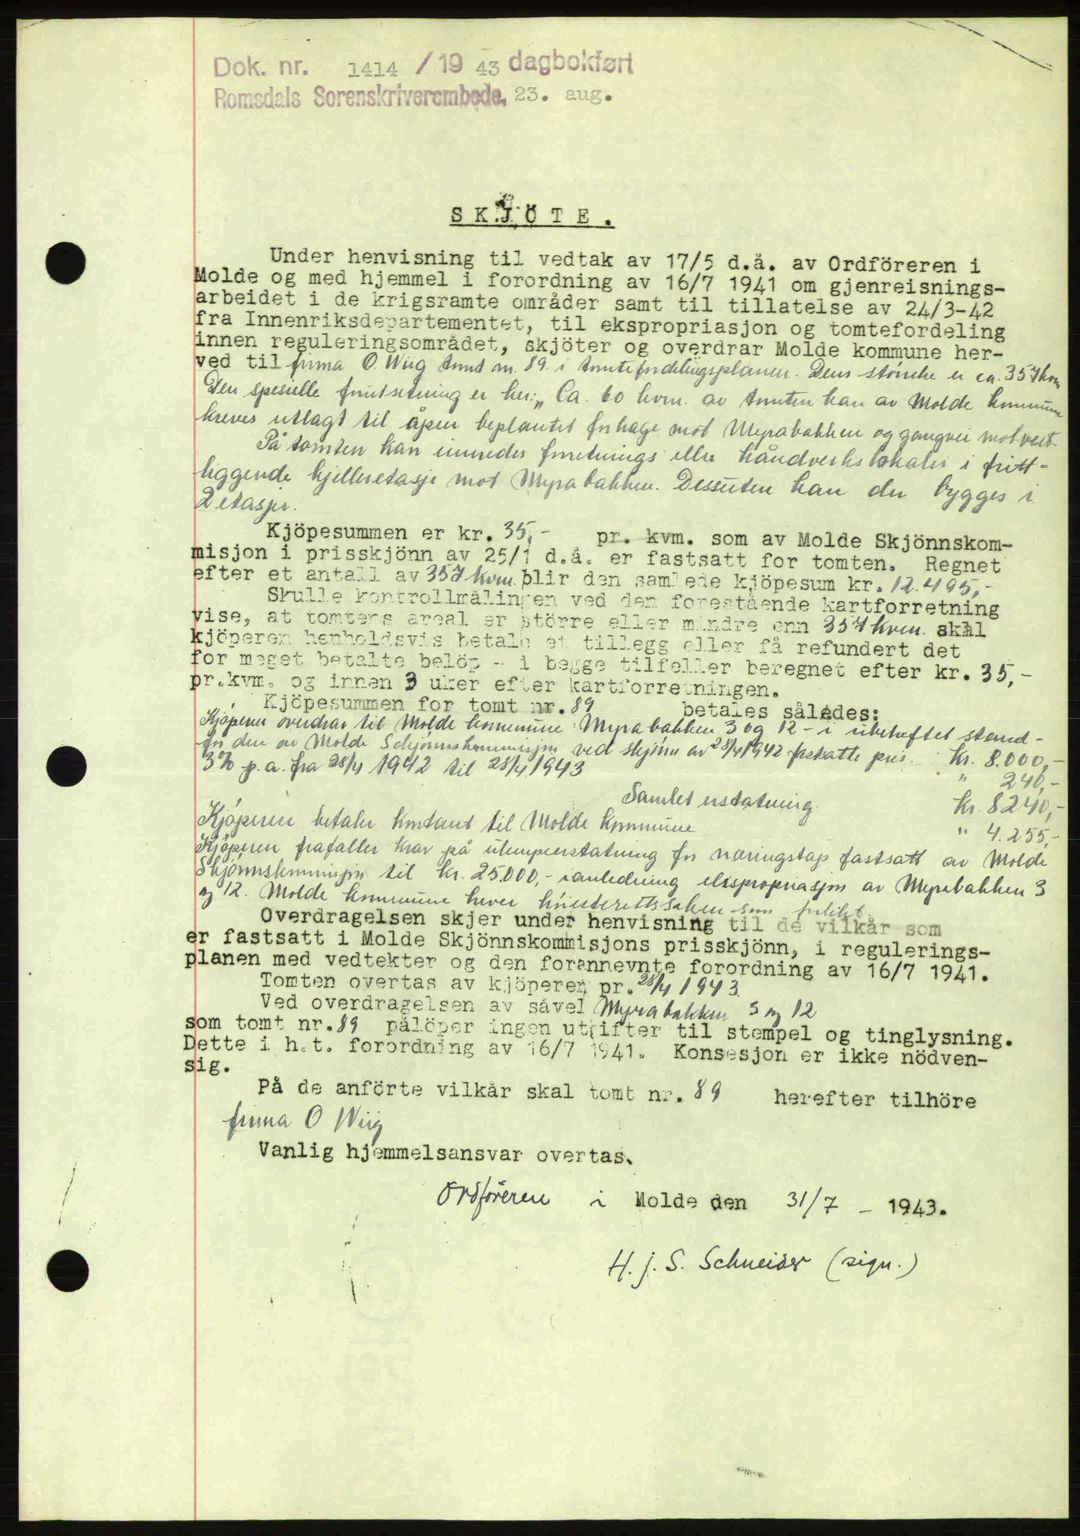 Dok. nr. 1414 /19 43 dagbokført
Romsdals Sorenskriverembede, 23. aug.
SKJÖTE.
Under henvisning til vedtak av 17/5 d.å. av Ordföreren i
Molde og med hjemmel i forordning av 16/7 1941 om gjenreisnings-
arbeidet i de krigsramte områder samt til tillatelse av 24/3-42
fra Innenriksdepartementet, til ekspropriasjon og tomtefordeling
innen reguleringsområdet, skjöter og overdrar Molde kommune her-
ved til firma O. Wiig tomt nr. 89 i tomtefordelingsplanen. Dens störrelse er ca. 357 kvm
Den spesielle forutsetning er her: „Ca. 60 kvm. av tomten kan av Molde kommune
kreves utlagt til åpen beplantet forhage mot Myrabakken og gangvei mot vest.
På tomten kan innredes forretnings eller håndverkslokaler i fritt-
liggende kjelleretasje mot Myrabakken. Dessuten kan der bygges i
2 etasjer.
Kjöpesummen er kr. 35,- pr. kvm. som av Molde Skjönnskom-
misjon i prisskjönn av 25/1 d.å. er fastsatt for tomten. Regnet
efter et antall av 357 kvm. blir den samlede kjöpesum kr. 12.495,-
Skulle kontrollmålingen ved den forestående kartforretning
vise, at tomtens areal er större eller mindre enn 357 kvm. skal
kjöperen henholdsvis betale et tillegg eller få refundert det
for meget betalte belöp - i begge tilfeller beregnet efter kr. 35,-
pr.kvm. og innen 3 uker efter kartforretningen.
Kjöpesummen for tomt nr. 89 betales således:
Kjöperen overdrar til Molde kommune Myrabakken 3 og 12 - i uheftet stand -
for den av Molde Skjönnskommisjon ved skjönn av 28/4 1942 fastsatte pris. kr. 8.000,-
3% p.a. fra 28/4 1942 til 28/4 1943 " 240,-
Samlet erstatning. kr. 8240,-
Kjöperen betaler kontant til Molde kommune " 4.255,-
Kjöperen frafaller krav på ulempeerstatning for næringstap fastsatt av Molde
Skjönnskommisjon til kr. 25.000,- i anledning ekspropriasjon av Myrabakken 3
og 12. Molde kommune hever höiesterettssaken som forliket.
Overdragelsen skjer under henvisning til de vilkår som
er fastsatt i Molde Skjönnskommisjons prisskjönn, i regulerings-
planen med vedtekter og den forannevnte forordning av 16/7 1941.
Tomten overtas av kjöperen pr. 28/4 1943.
Ved overdragelsen av såvel Myrabakken 3 og 12
som tomt nr. 89 pålöper ingen utgifter til stempel og tinglysning.
Dette i h.t. forordning av 16/7 1941. Konsesjon er ikke nödven-
sig.
På de anförte vilkår skal tomt nr. 89 herefter tilhöre
firma O Wiig
Vanlig hjemmelsansvar overtas.
Ordföreren i Molde den 31/7 - 1943.
H. J. S. Schneider (sign.)